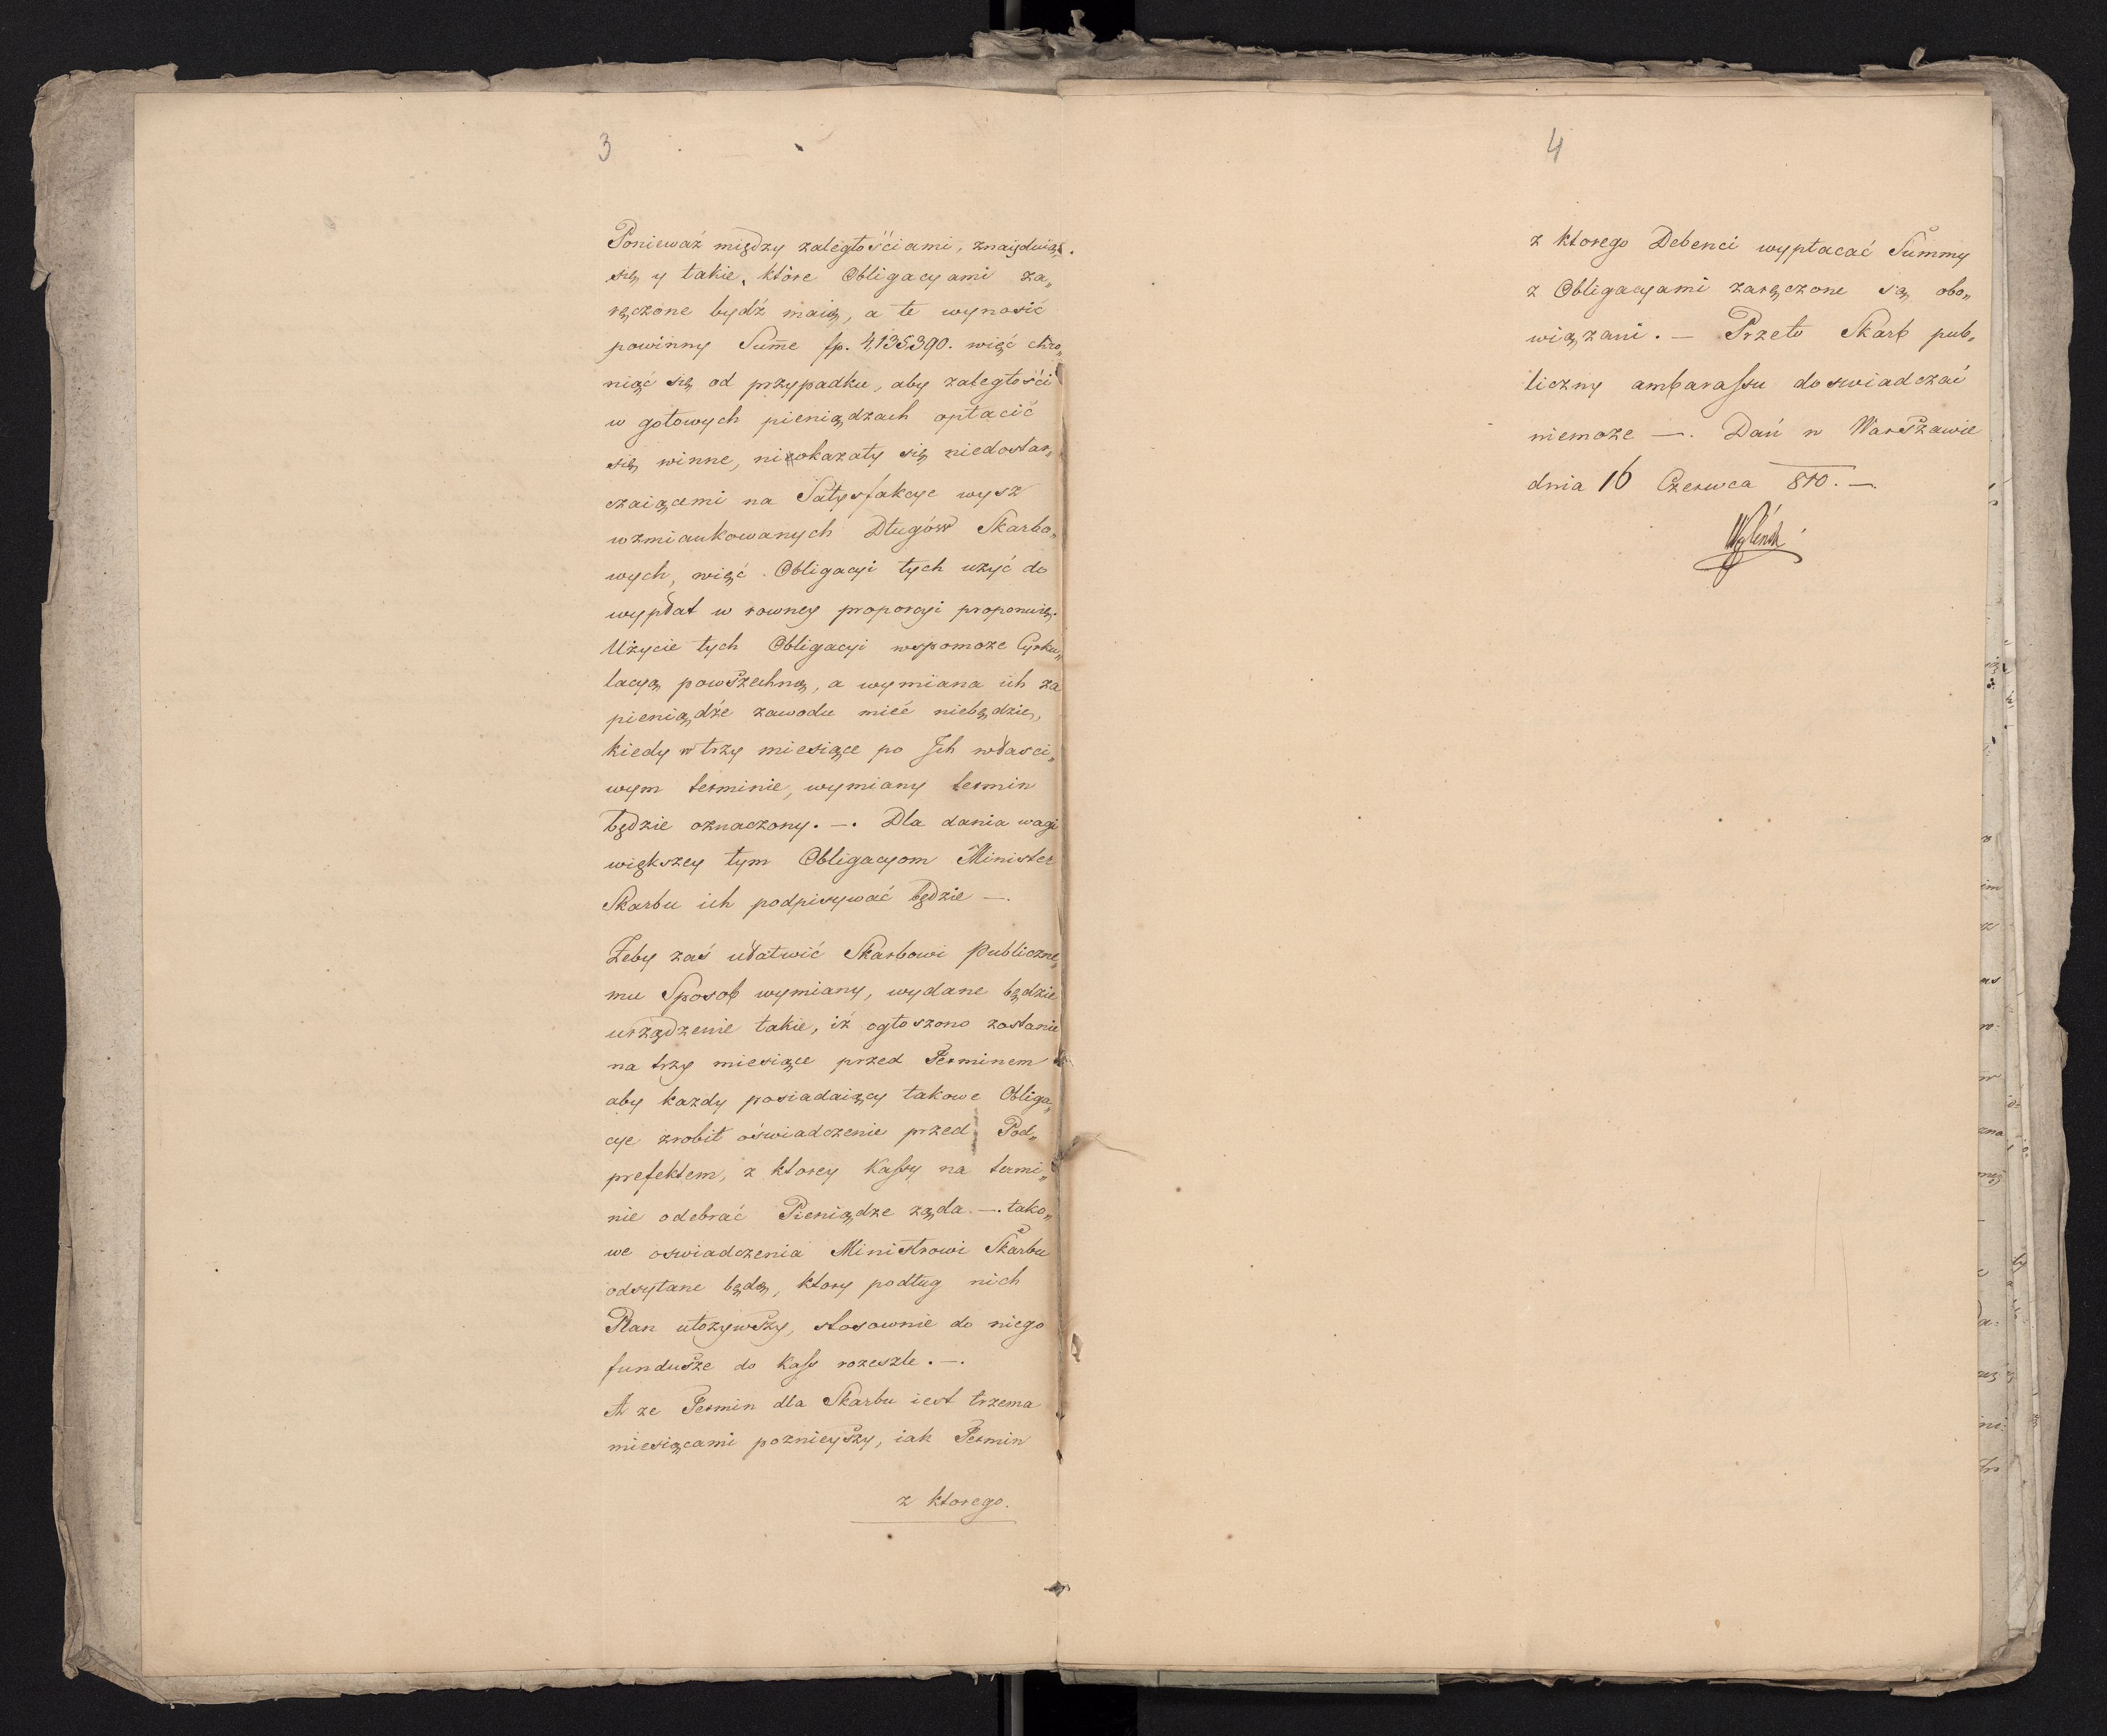 3
Ponieważ między zaległościami, znayduią
się y takie, które Obligacyami za„
ręczone bydź maią, a te wynosić
powinny Sum̄e fp. 4,135,390. więć chro„
niąć się od przypadku, aby zaległości
w gotowych pieniądzach opłacić
się winne, nieokazały się niedostar„
czaiącemi na Satysfakcye wysz
wzmiankowanych Długów Skarbo„
wych, więć Obligacyi tych użyć do
wypłat w rowney proporcyi proponuię.
Użycie tych Obligacyi wspomoże Cyrku„
lacyą powszechną, a wymiana ich za
pieniądze zawodu mieć niebędzie,
kiedy w trzy miesiące po Ich właści„
wym terminie, wymiany termin
będzie oznaczony. —. Dla dania wagi
większey tym Obligacyom Minister
Skarbu ich podpisywać będzie —.
Żeby zaś ułatwić Skarbowi Publiczne„
mu Sposob wymiany, wydane będzie
urządzenie takie, iż ogłoszono zostanie
na trzy miesiące przed Terminem
aby kazdy posiadaiący takowe Obliga„
cye zrobił oświadczenie przed Pod„
prefektem, z ktorey Kassy na termi„
nie odebrać Pieniądze ząda. —. tako„
we oswiadczenia Ministrowi Skarbu
odsyłane będą, ktory podług nich
Plan ułożywszy, stosownie do niego
fundusze do Kass rozeszle. —.
A ze Termin dla Skarbu iest trzema
miesiącami poznieyszy, iak Termin
z ktorego.
4
z ktorego Debenci wypłacać Summy
z Obligacyami zaręczone są obo„
wiązani. — Przeto Skarb pub„
liczny ambarassu doswiadczać
niemoze —. Dań w Warszawie
dnia 16 Czerwca 810. —.